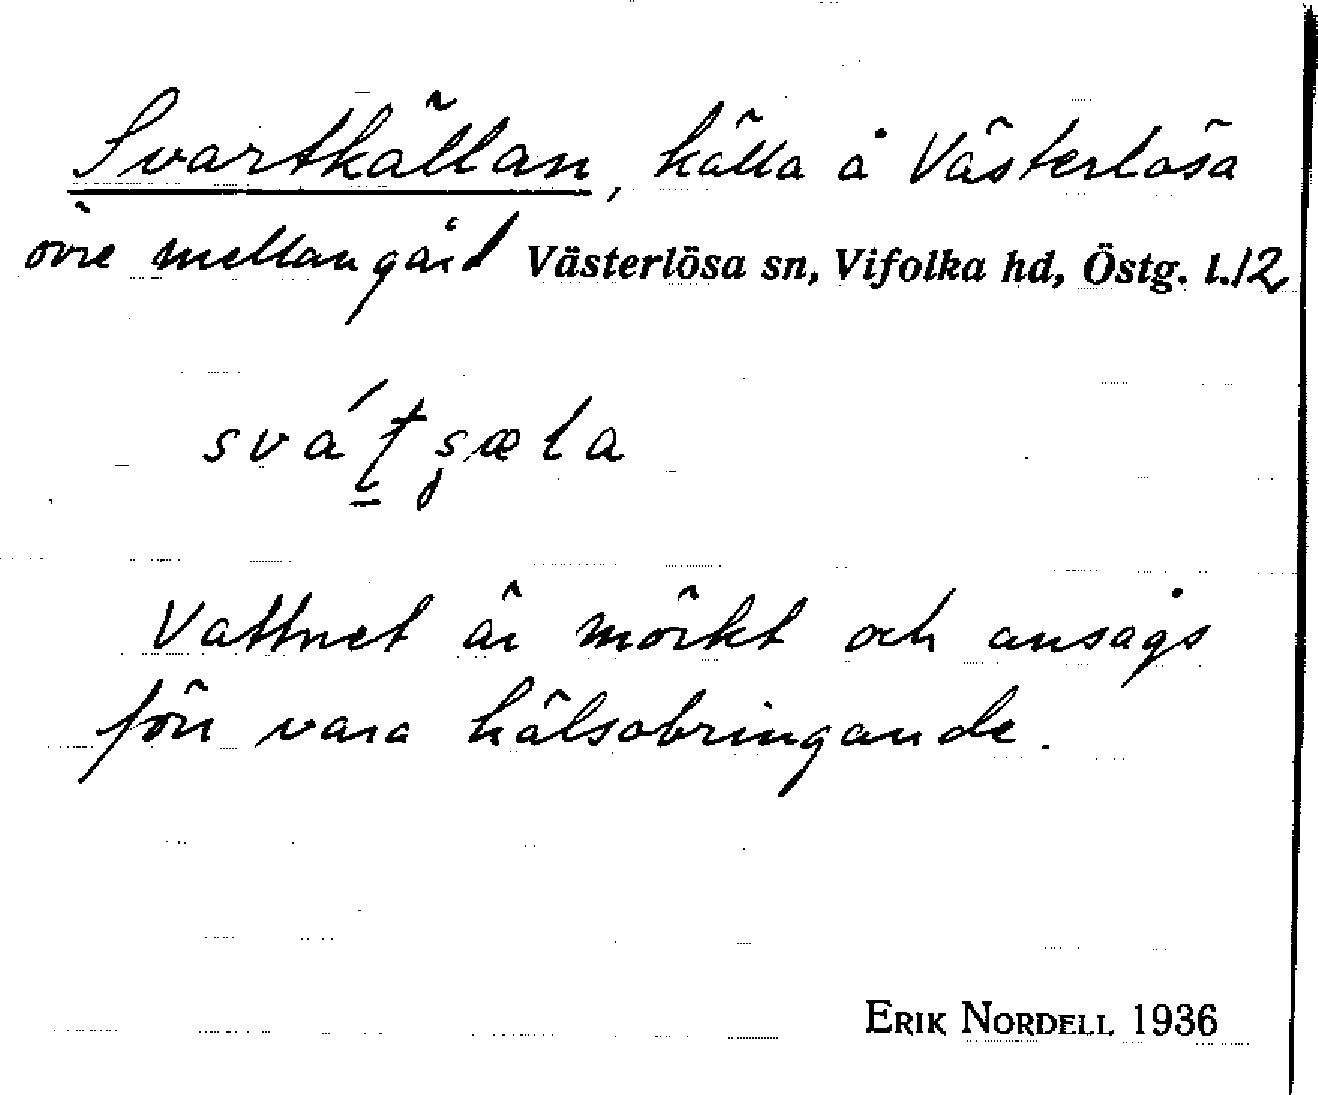 Svartkällan, källa å Västerlösa
övre mellangård Västerlösa sn, Vifolka hd, Östg. l. 12
svát̠ʂæla
Vattnet är mörkt och ansågs
förr vara hälsobringande.
ERIK NORDELL 1936